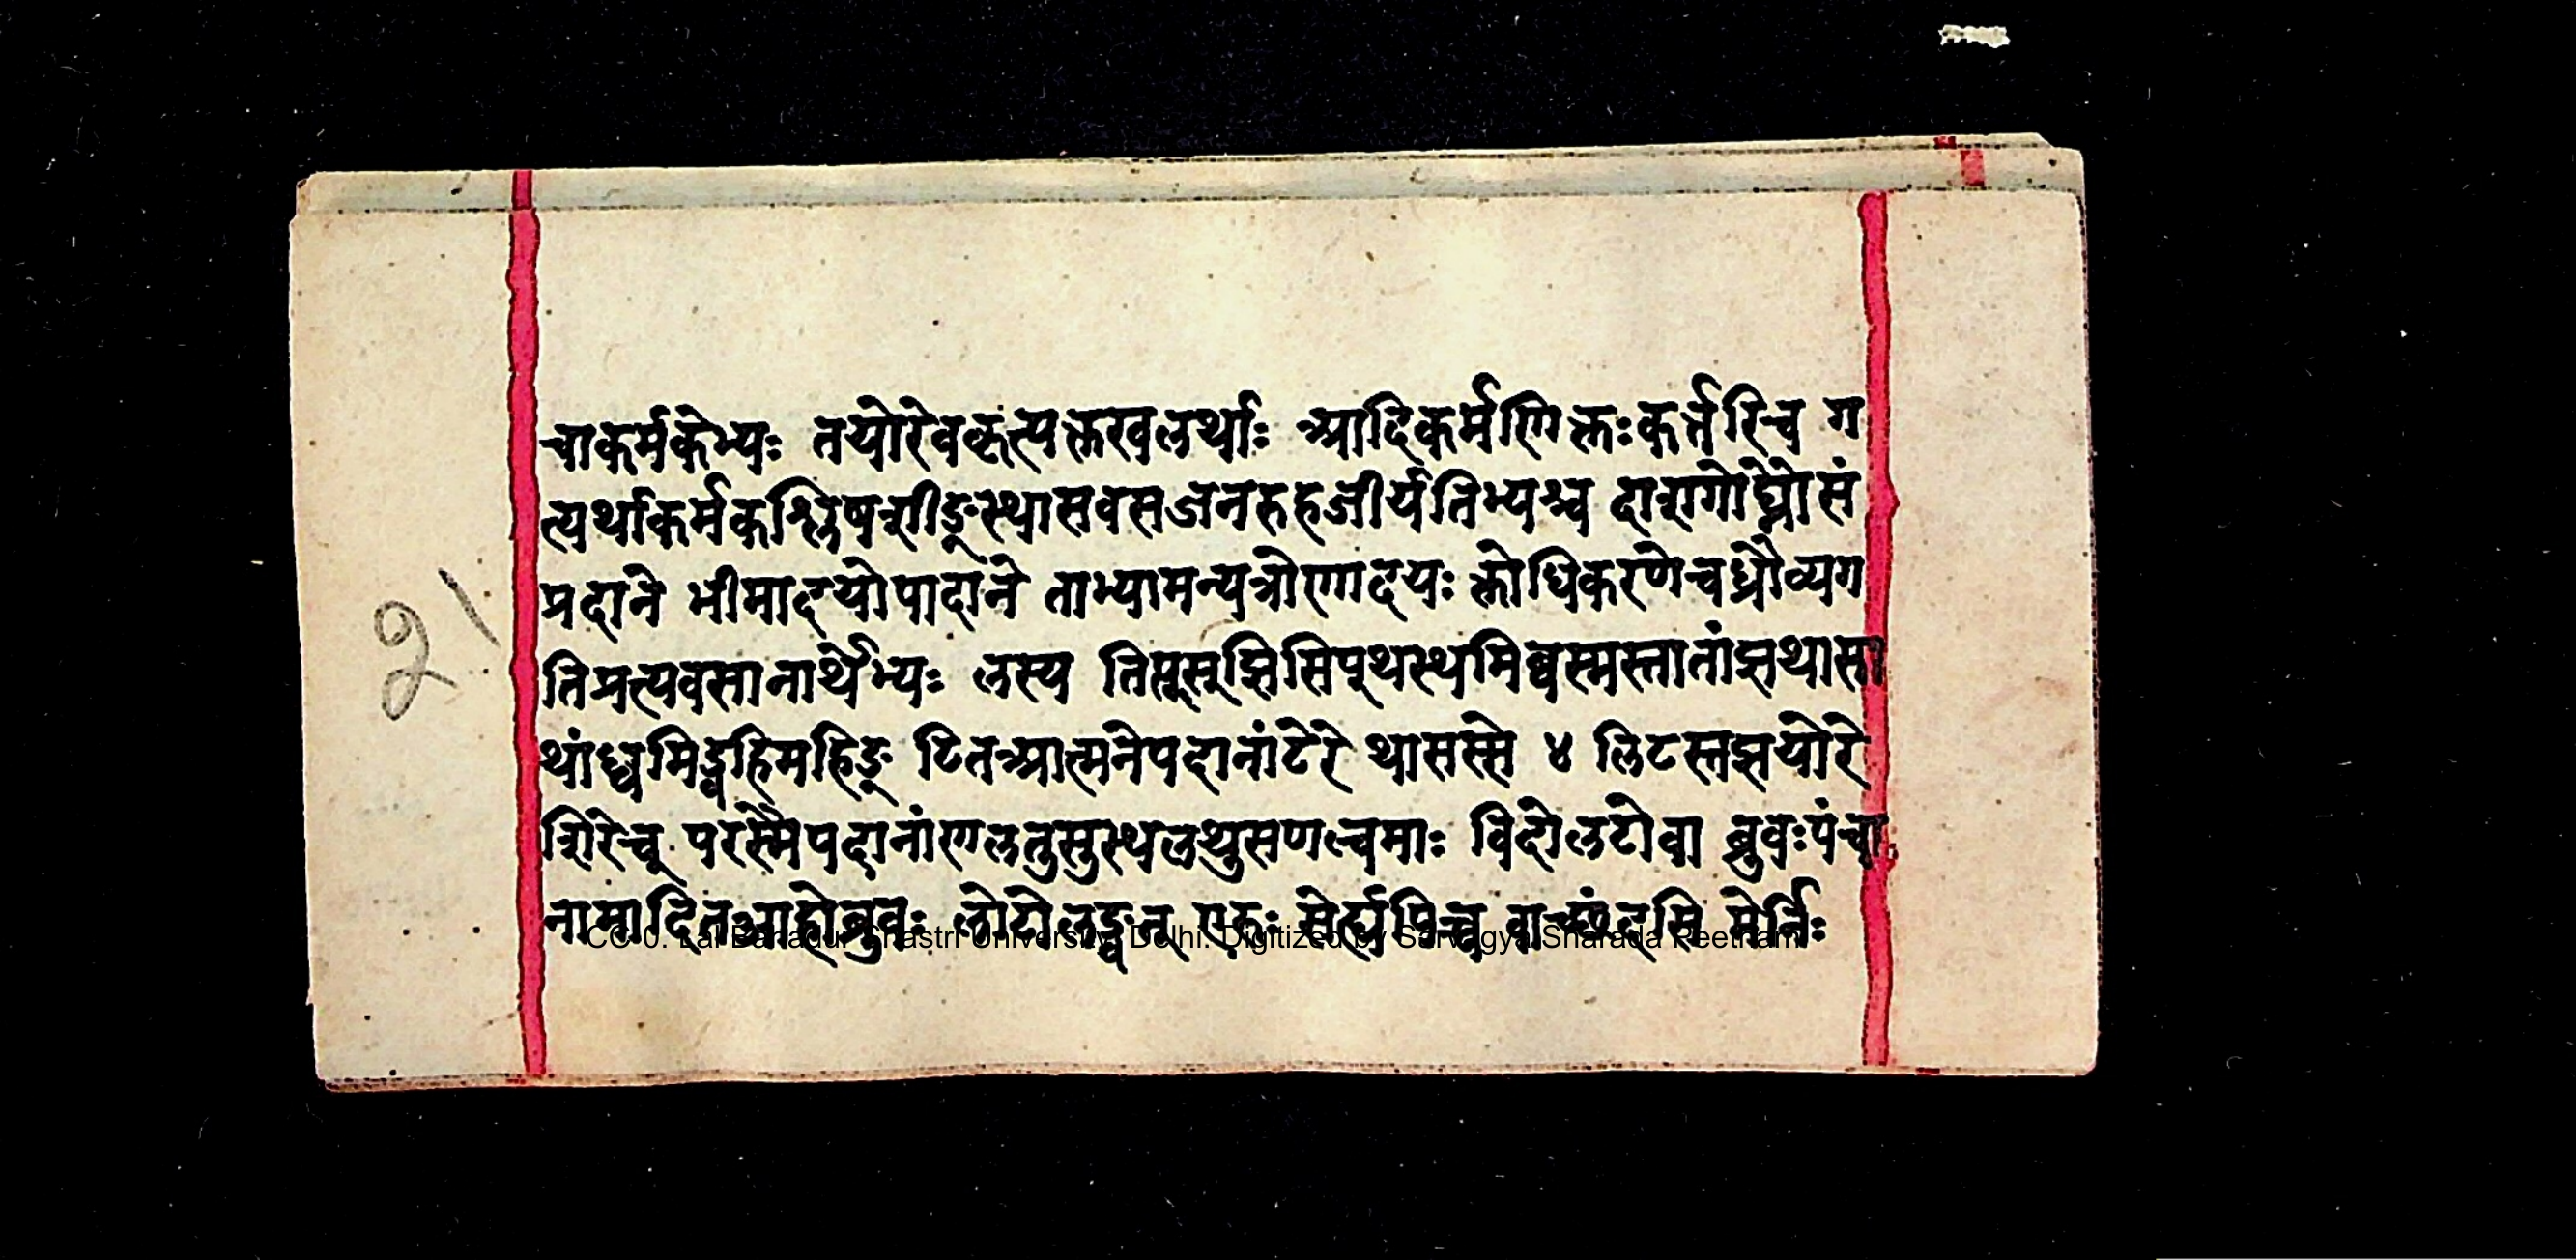 चाकर्मकेभ्यः तयोरेवकृत्यक्तखलर्थाः आदिकर्मणि क्तःकर्त्तरिच ग
त्यर्थाकर्मकश्लिषशीङ्स्थासवसजनरुहजीर्यतिभ्यश्च दाशगोघ्नोसं
प्रदाने भीमादयोपादाने ताभ्यामन्यत्रोणादयः क्तोधिकरणेचध्रौव्यग
तिप्रत्यवसानार्थेभ्यः लस्य तिप्तस्झिसिप्थस्थमिब्वस्मस्तातांझथासा
थांध्वमिड्वहिमहिङ् टितआत्मनेपदानांटेरे थासस्से ४ लिटस्तझयोरे
शिरेच् परस्मैपदानांणलतुसुस्थलथुसणल्वमाः विदोलटोवा ब्रुवःपंचा
नामादितआहोब्रुवः लोटोलङ्वत् एरुः सेर्ह्यपिच्च वाच्छंदसि मेर्निः
२१
CC-0. Lal Bahadur Shastri University, Delhi. Digitized by Sarvagya Sharada Peetham